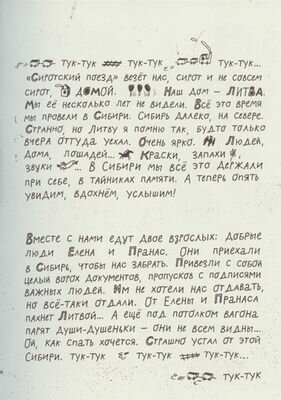 тук-тук тук-тук тук-тук...
«Сиротский поезд» везёт нас, сирот и не совсем
сирот, домой. Наш дом – Литва.
Мы её несколько лет не видели. Всё это время
мы провели в Сибири. Сибирь далеко, на севере.
Странно, но Литву я помню так, будто только
вчера оттуда уехал. Очень ярко. Людей,
дома, лошадей... Краски, запахи,
звуки... В Сибири мы всё это держали
при себе, в тайниках памяти. А теперь опять
увидим, вдохнём, услышим!
Вместе с нами едут двое взрослых: добрые
люди Елена и Пранас. Они приехали
в Сибирь, чтобы нас забрать. Привезли с собой
целый ворох документов, пропусков с подписями
важных людей. Им не хотели нас отдавать,
но всё-таки отдали. От Елены и Пранаса
пахнет Литвой... А ещё под потолком вагона
парят Души-Душеньки – они не всем видны...
Ой, как спать хочется. Страшно устал от этой
Сибири. тук-тук тук-тук тук-тук...
тук-тук